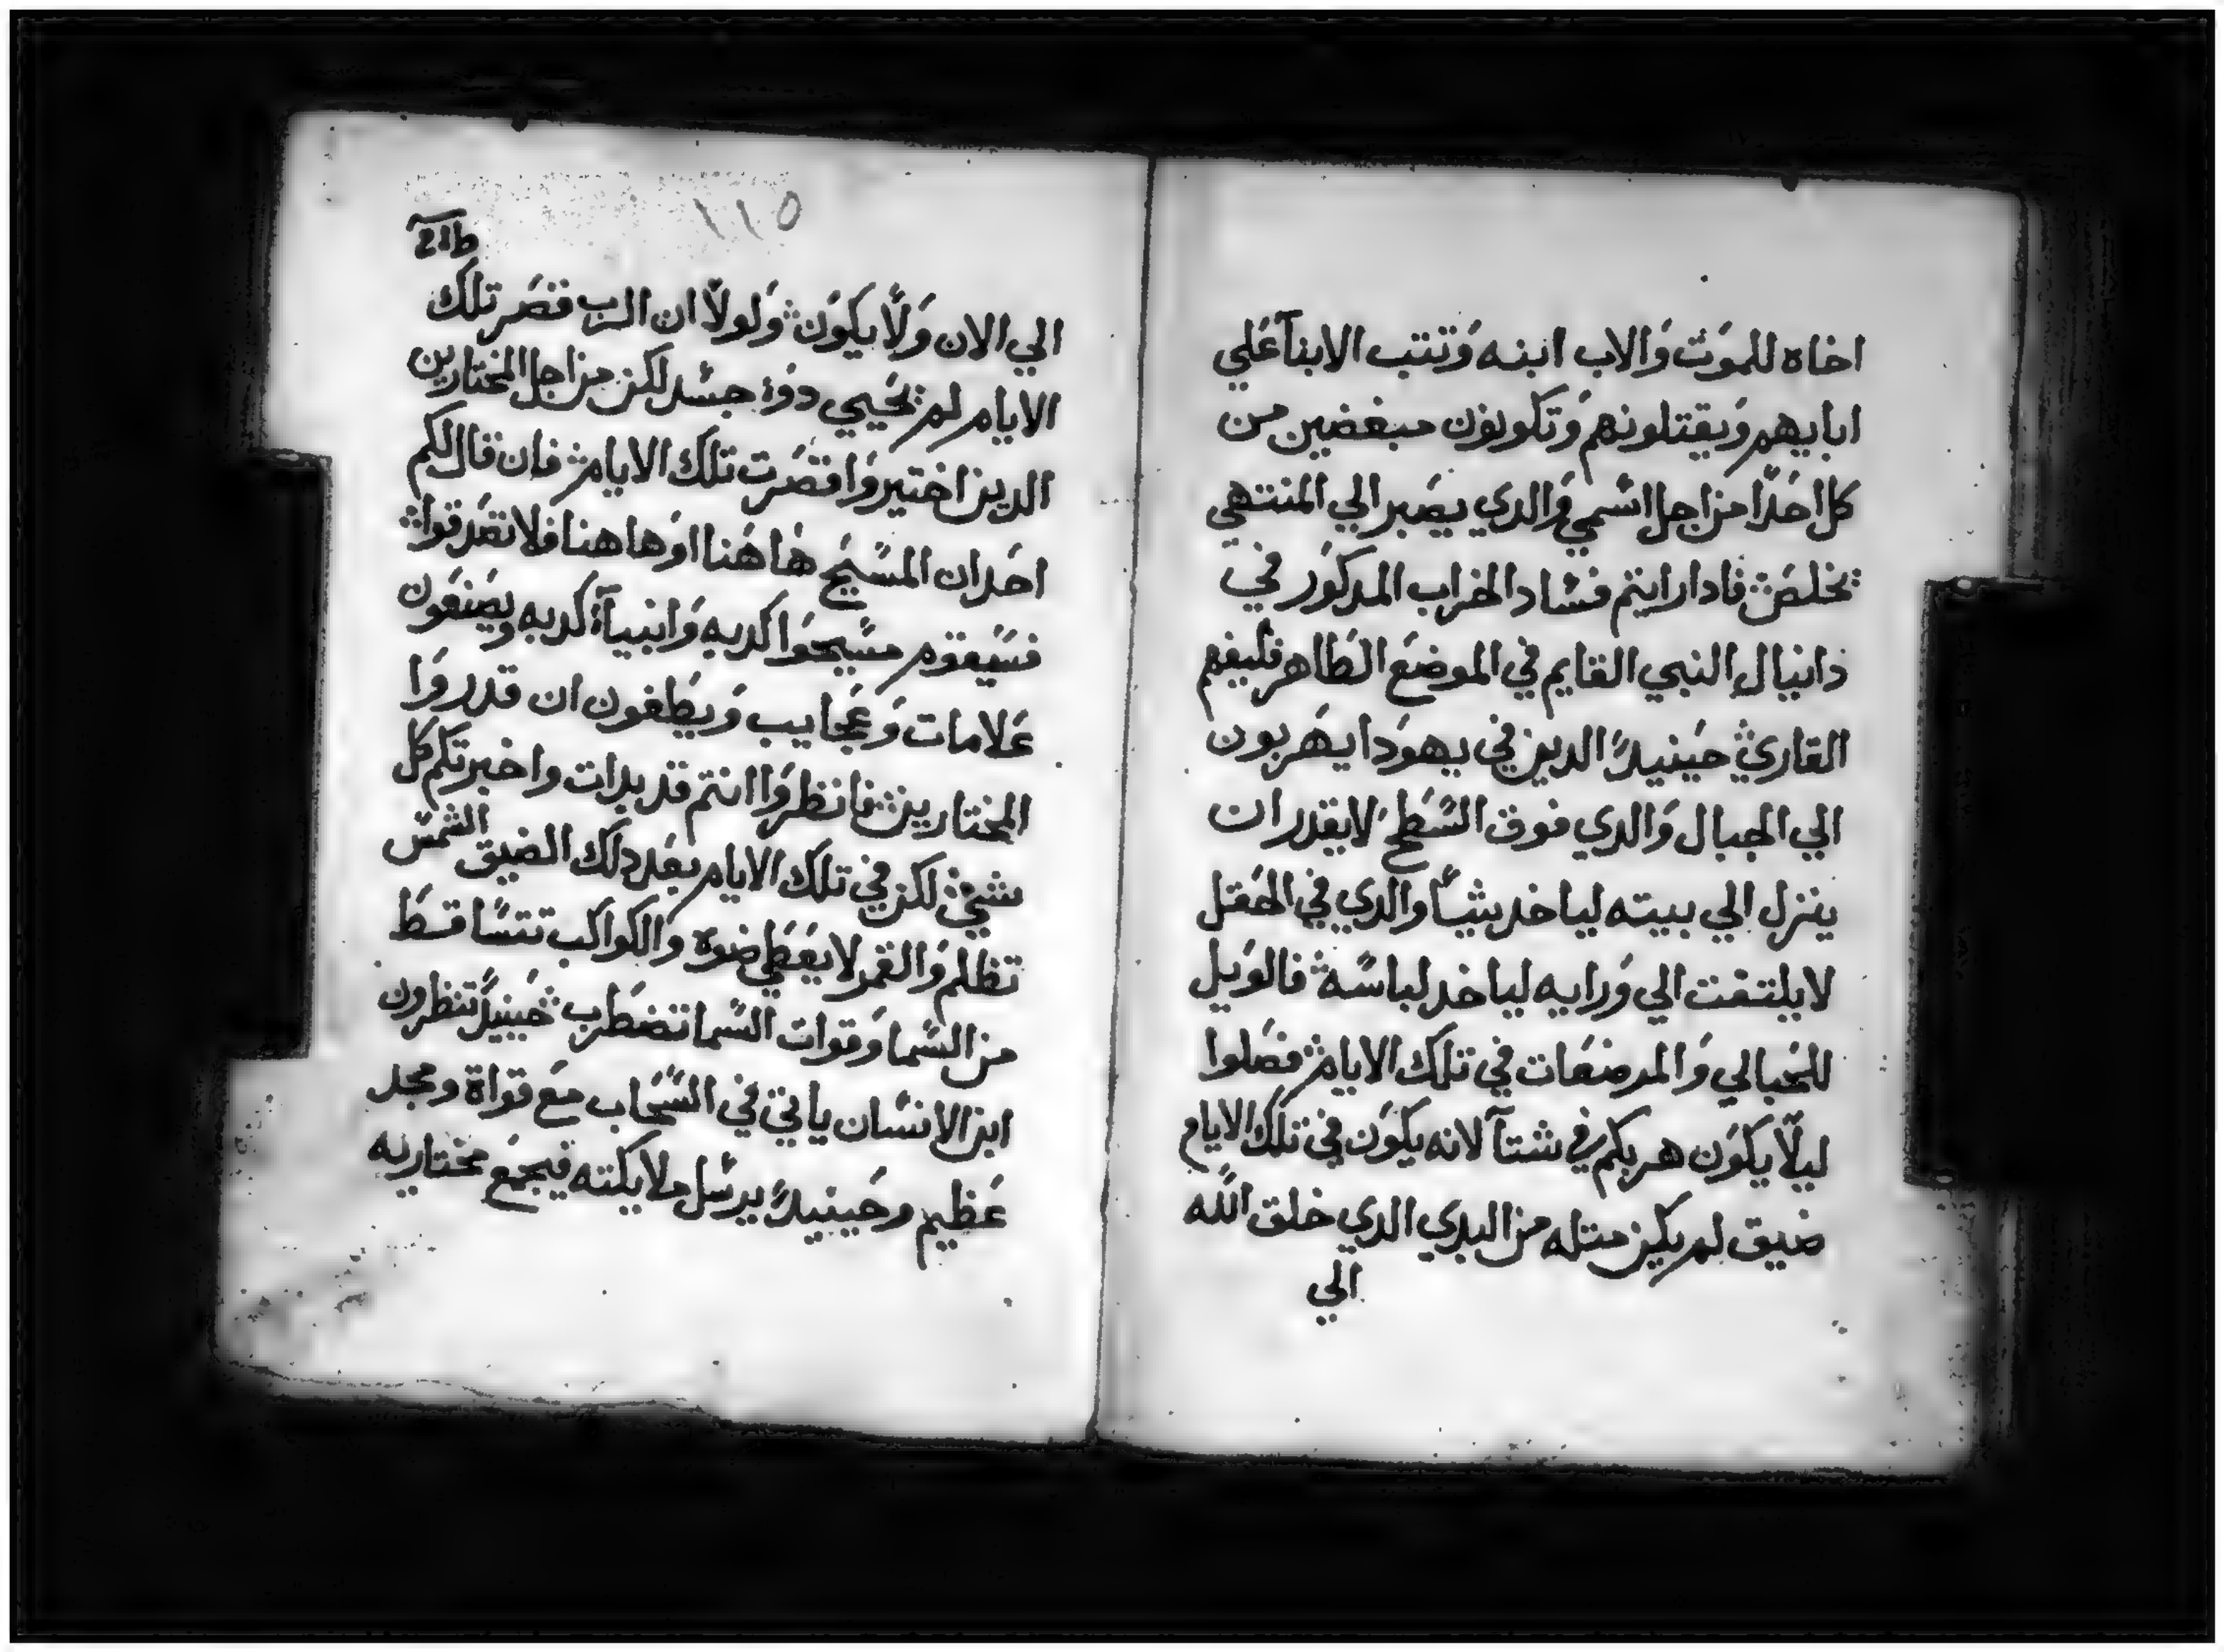 اخاه للموت والاب ابنه وتتب الابنا علي
اباييهم ويقتلونهم وتكونون مبغضين من
كل احدا من اجل اسمي والدي يصبر الي المنتهي
يخلص فادا رايتم فساد الخراب المدكور في
دانيال النبي القايم في الموضع الطاهر فليفهم
القاري حينيدً الدين في يهودا يهربون
الي الجبال والدي فوق السطح لا يقدر ان
ينزل الي بيته لياخد شياً والدي في الحقل
لا يلتفت الي ورايه لياخد لباسه فالويل
للحبالي والمرضعات في تلك الايام فصلوا
ليلا يكون هربكم في شتآ لانه يكون في تلك الايام
ضيق لم يكن متله من البدي الدي خلق الله
الي
١١٥
الي الان ولا يكون ولولا ان الرب قصر تلك
الايام لم يحيي دو جسد لكن من اجل المختارين
الدين اختيروا قصرت تلك الايام فان قال لكم
احد ان المسيح هاهنا او هاهنا فلا تصدقوا
فسيقوم مسيحوا كدبه وانبيآ كدبه ويصنعون
علامات وعجايب ويطغون ان قدروا
المختارين فانظروا انتم قد بدات واخبرتكم كل
شي لكن في تلك الايام بعد دلك الضيق الشمس
تظلم والقمر لا يعطي ضوه والكواكب تتساقط
من السما وقوات السما تضطرب حينيدً تنظرون
ابن الانسان ياتي في السحاب مع قواة ومجد
عظيم وحينيدً يرسل ملايكته فيجمع مختاريه